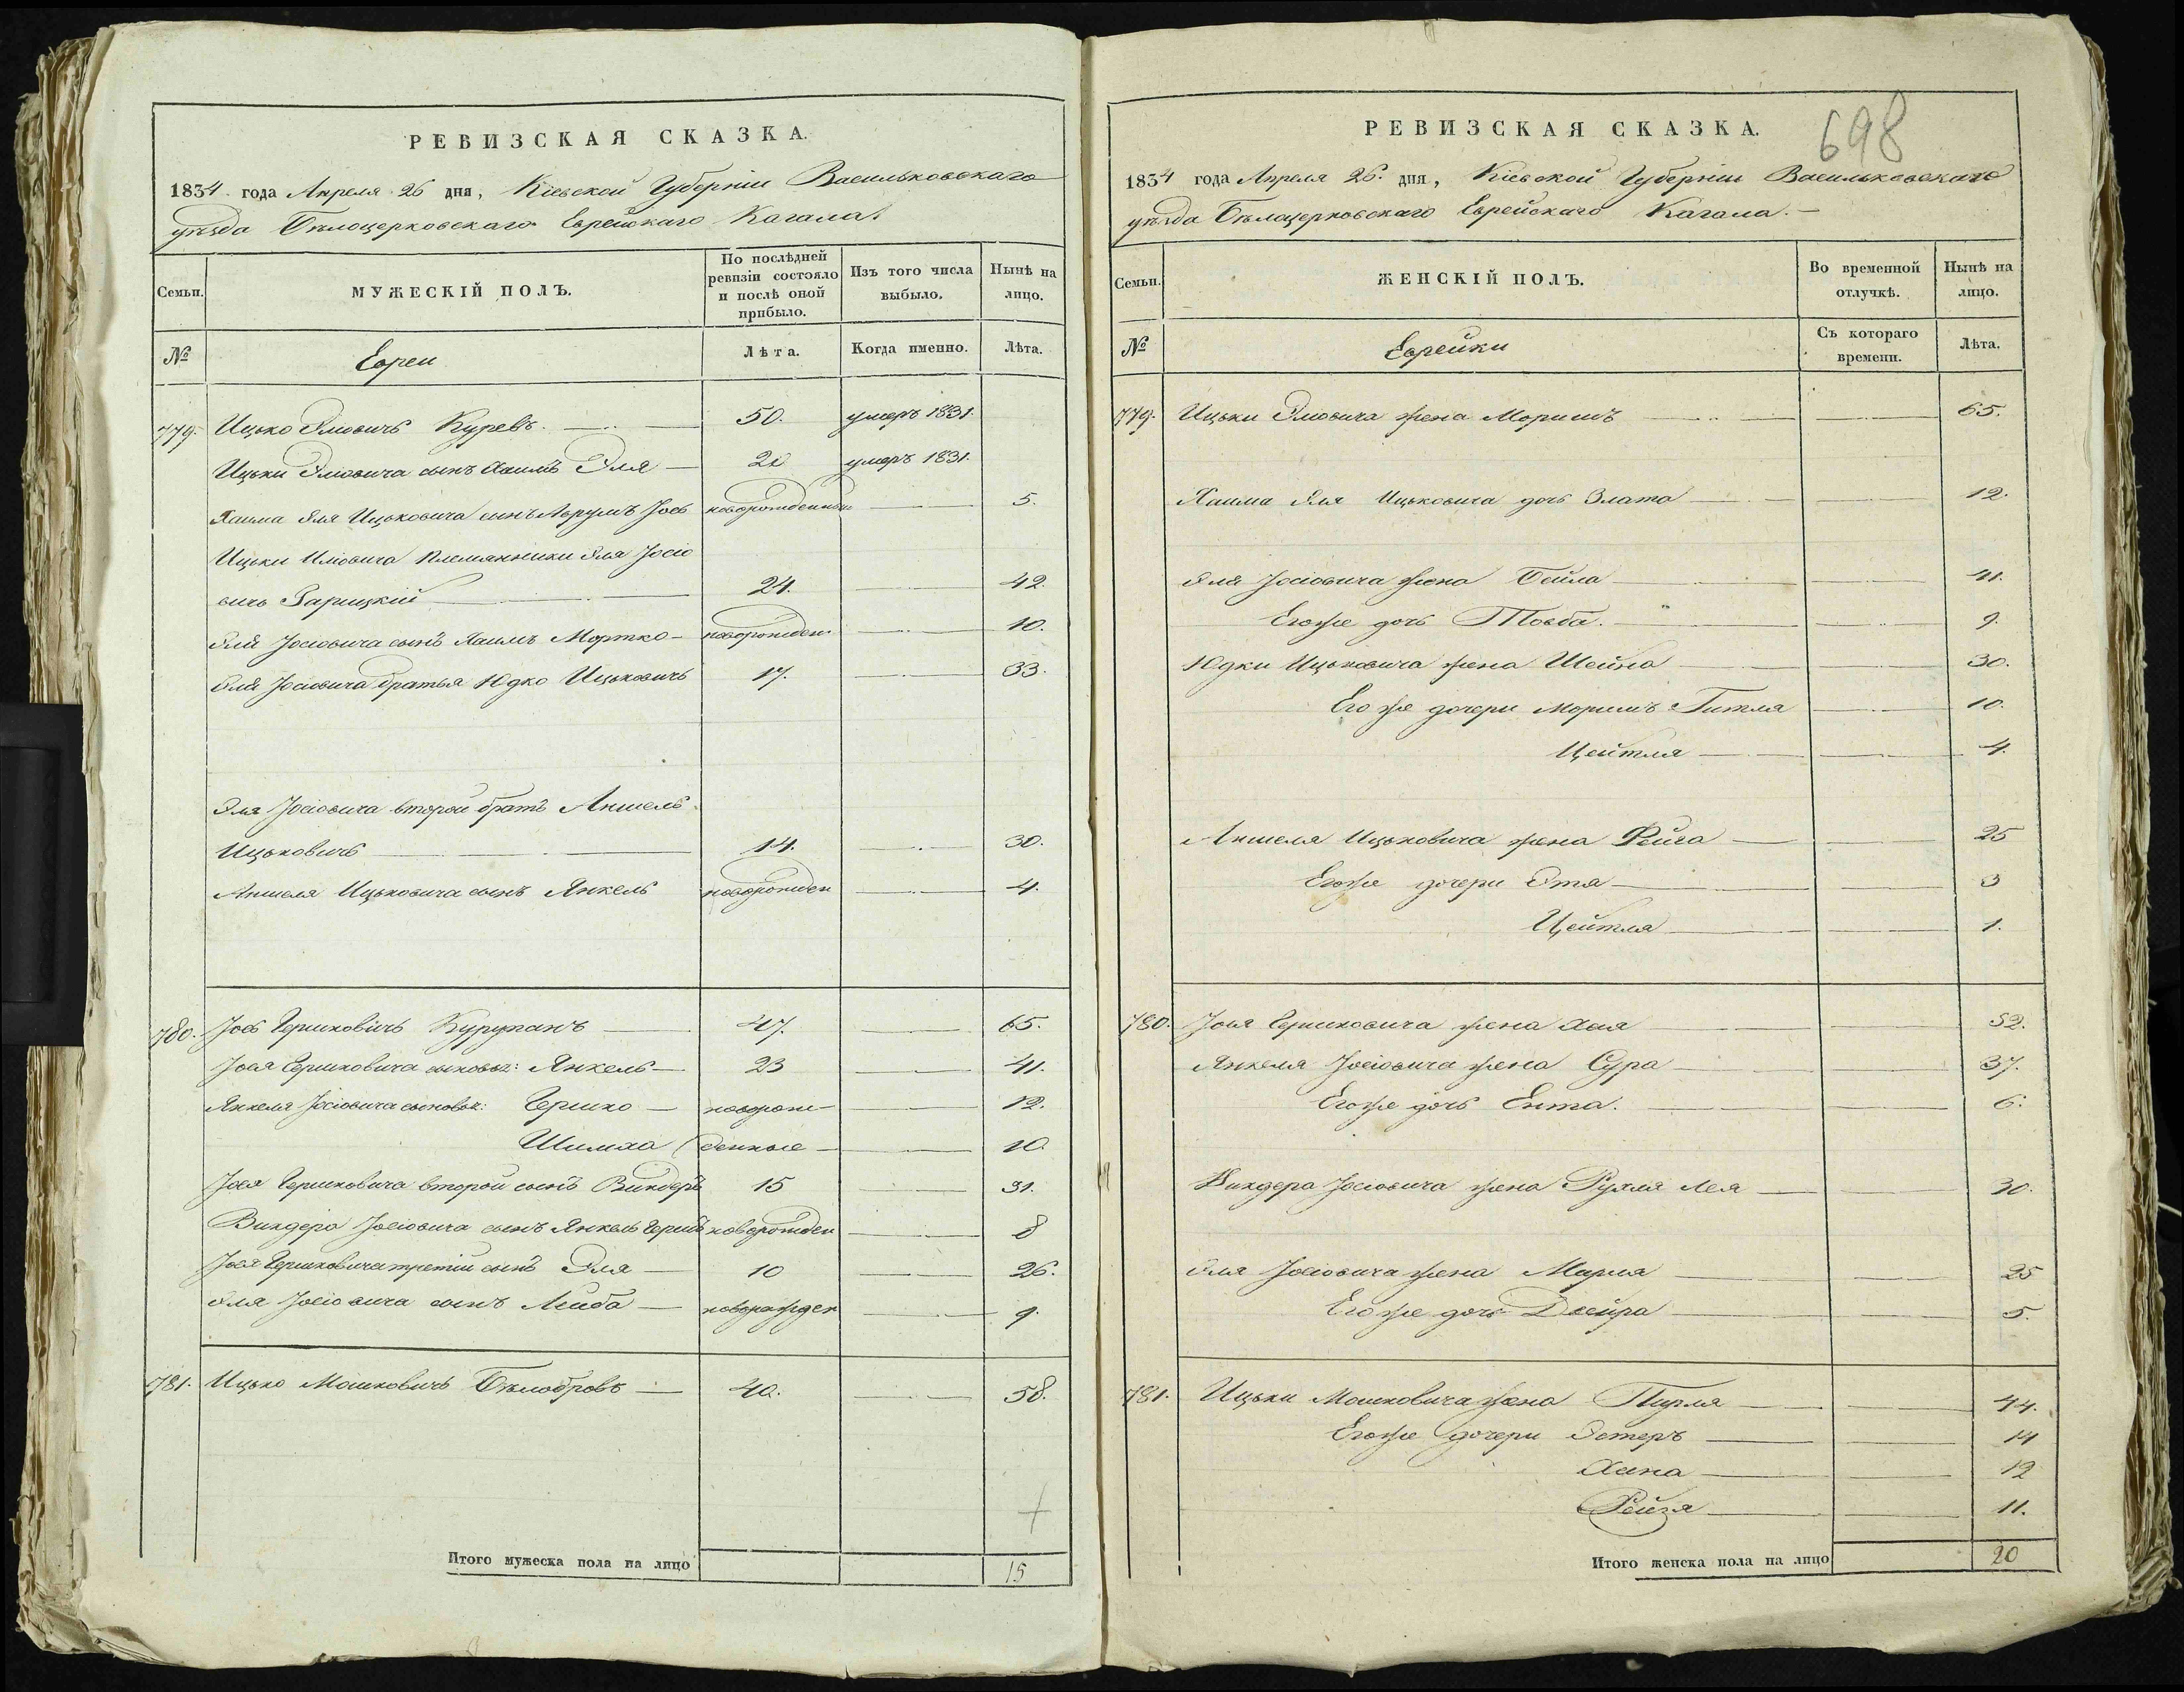 РЕВИЗСКАЯ СКАЗКА.
1834 года Апреля 26 дня, Кіевской Губерніи Васильковскаго
уѣзда Бѣлоцерковскаго Еврейскаго Кагала.
Семьи.
МУЖЕСКІЙ ПОЛЪ.
По послѣдней
ревизіи состояло
и послѣ оной
прибыло.
Изъ того числа
выбыло.
Нынѣ на
лицо.
№
Евреи
Лѣта.
Когда именно.
Лѣта.
779. Ицько Элиовичъ 50. умеръ 1831.
Ицьки Элиовича сынъ Хаимъ Эля 20 умеръ 1831.
Хаима Эля Ицьковича сынъ Аврумъ Іось новорожденный 5.
Ицьки Иліовича племянники Эля Іосіо
вичь 24. 42.
Эля Іосіовича сынъ Хаимъ Мортко новорожден 10.
Эля Іосіовича братья Юдко Ицьковичъ 17. 33.
Эля Іосіовича второй братъ Аншель
Ицьковичъ 14. 30.
Аншеля Ицьковича сынъ Янкель новорожден 4.
780. Іось Гершковичъ 47. 65.
Іося Гершковича сыновья: Янкель 23 41.
Янкеля Іосіовича сыновья: Гершко новорож- 12.
Шимха денные 10.
Іося Гершковича второй сынъ Виндеръ 15 31.
Виндера Іосіовича сынъ Янкель Гершъ новорожден 8
Іося Гершковича третій сынъ Эля 10 26.
Эля Іосіовича сынъ Лейба новорожден 9.
781. Ицько Мошковичъ Бѣлобровъ 40. 58.
Итого мужеска пола на лицо 15
698
РЕВИЗСКАЯ СКАЗКА.
1834 года Апреля 26. дня, Кіевской Губерніи Васильковскаго
уѣзда Бѣлацерковскаго Еврейскаго Кагала.
Семьи.
ЖЕНСКІЙ ПОЛЪ.
Во временной
отлучкѣ.
Нынѣ на
лицо.
№
Еврейки
Съ котораго
времени.
Лѣта.
779. Ицьки Элиовича жена Моримъ 65.
Хаима Эля Ицьковича дочь Злата 12.
Эля Іосіовича жена Бейла 41.
Егоже дочь Товба. 9.
Юдки Ицьковича жена Шейна 30.
Его же дочери Моримъ Гитля 10.
Цейтля 4.
Аншеля Ицьковича жена Фейга 25
Егоже дочери Этя 3
Цейтля 1.
780. Іося Гершковича жена Хая 52.
Янкеля Іосіовича жена Сура 37.
Егоже дочь Ента. 6.
Виндера Іосіовича жена Рухля Лея 30.
Эля Іосіовича жена Марія 25
Его же дочь Двейра 5.
781. Ицьки Мошковича жена Пирля 44.
Егоже дочери Эстеръ 14
Хана 12
Рейзя 11.
Итого женска пола на лицо 20